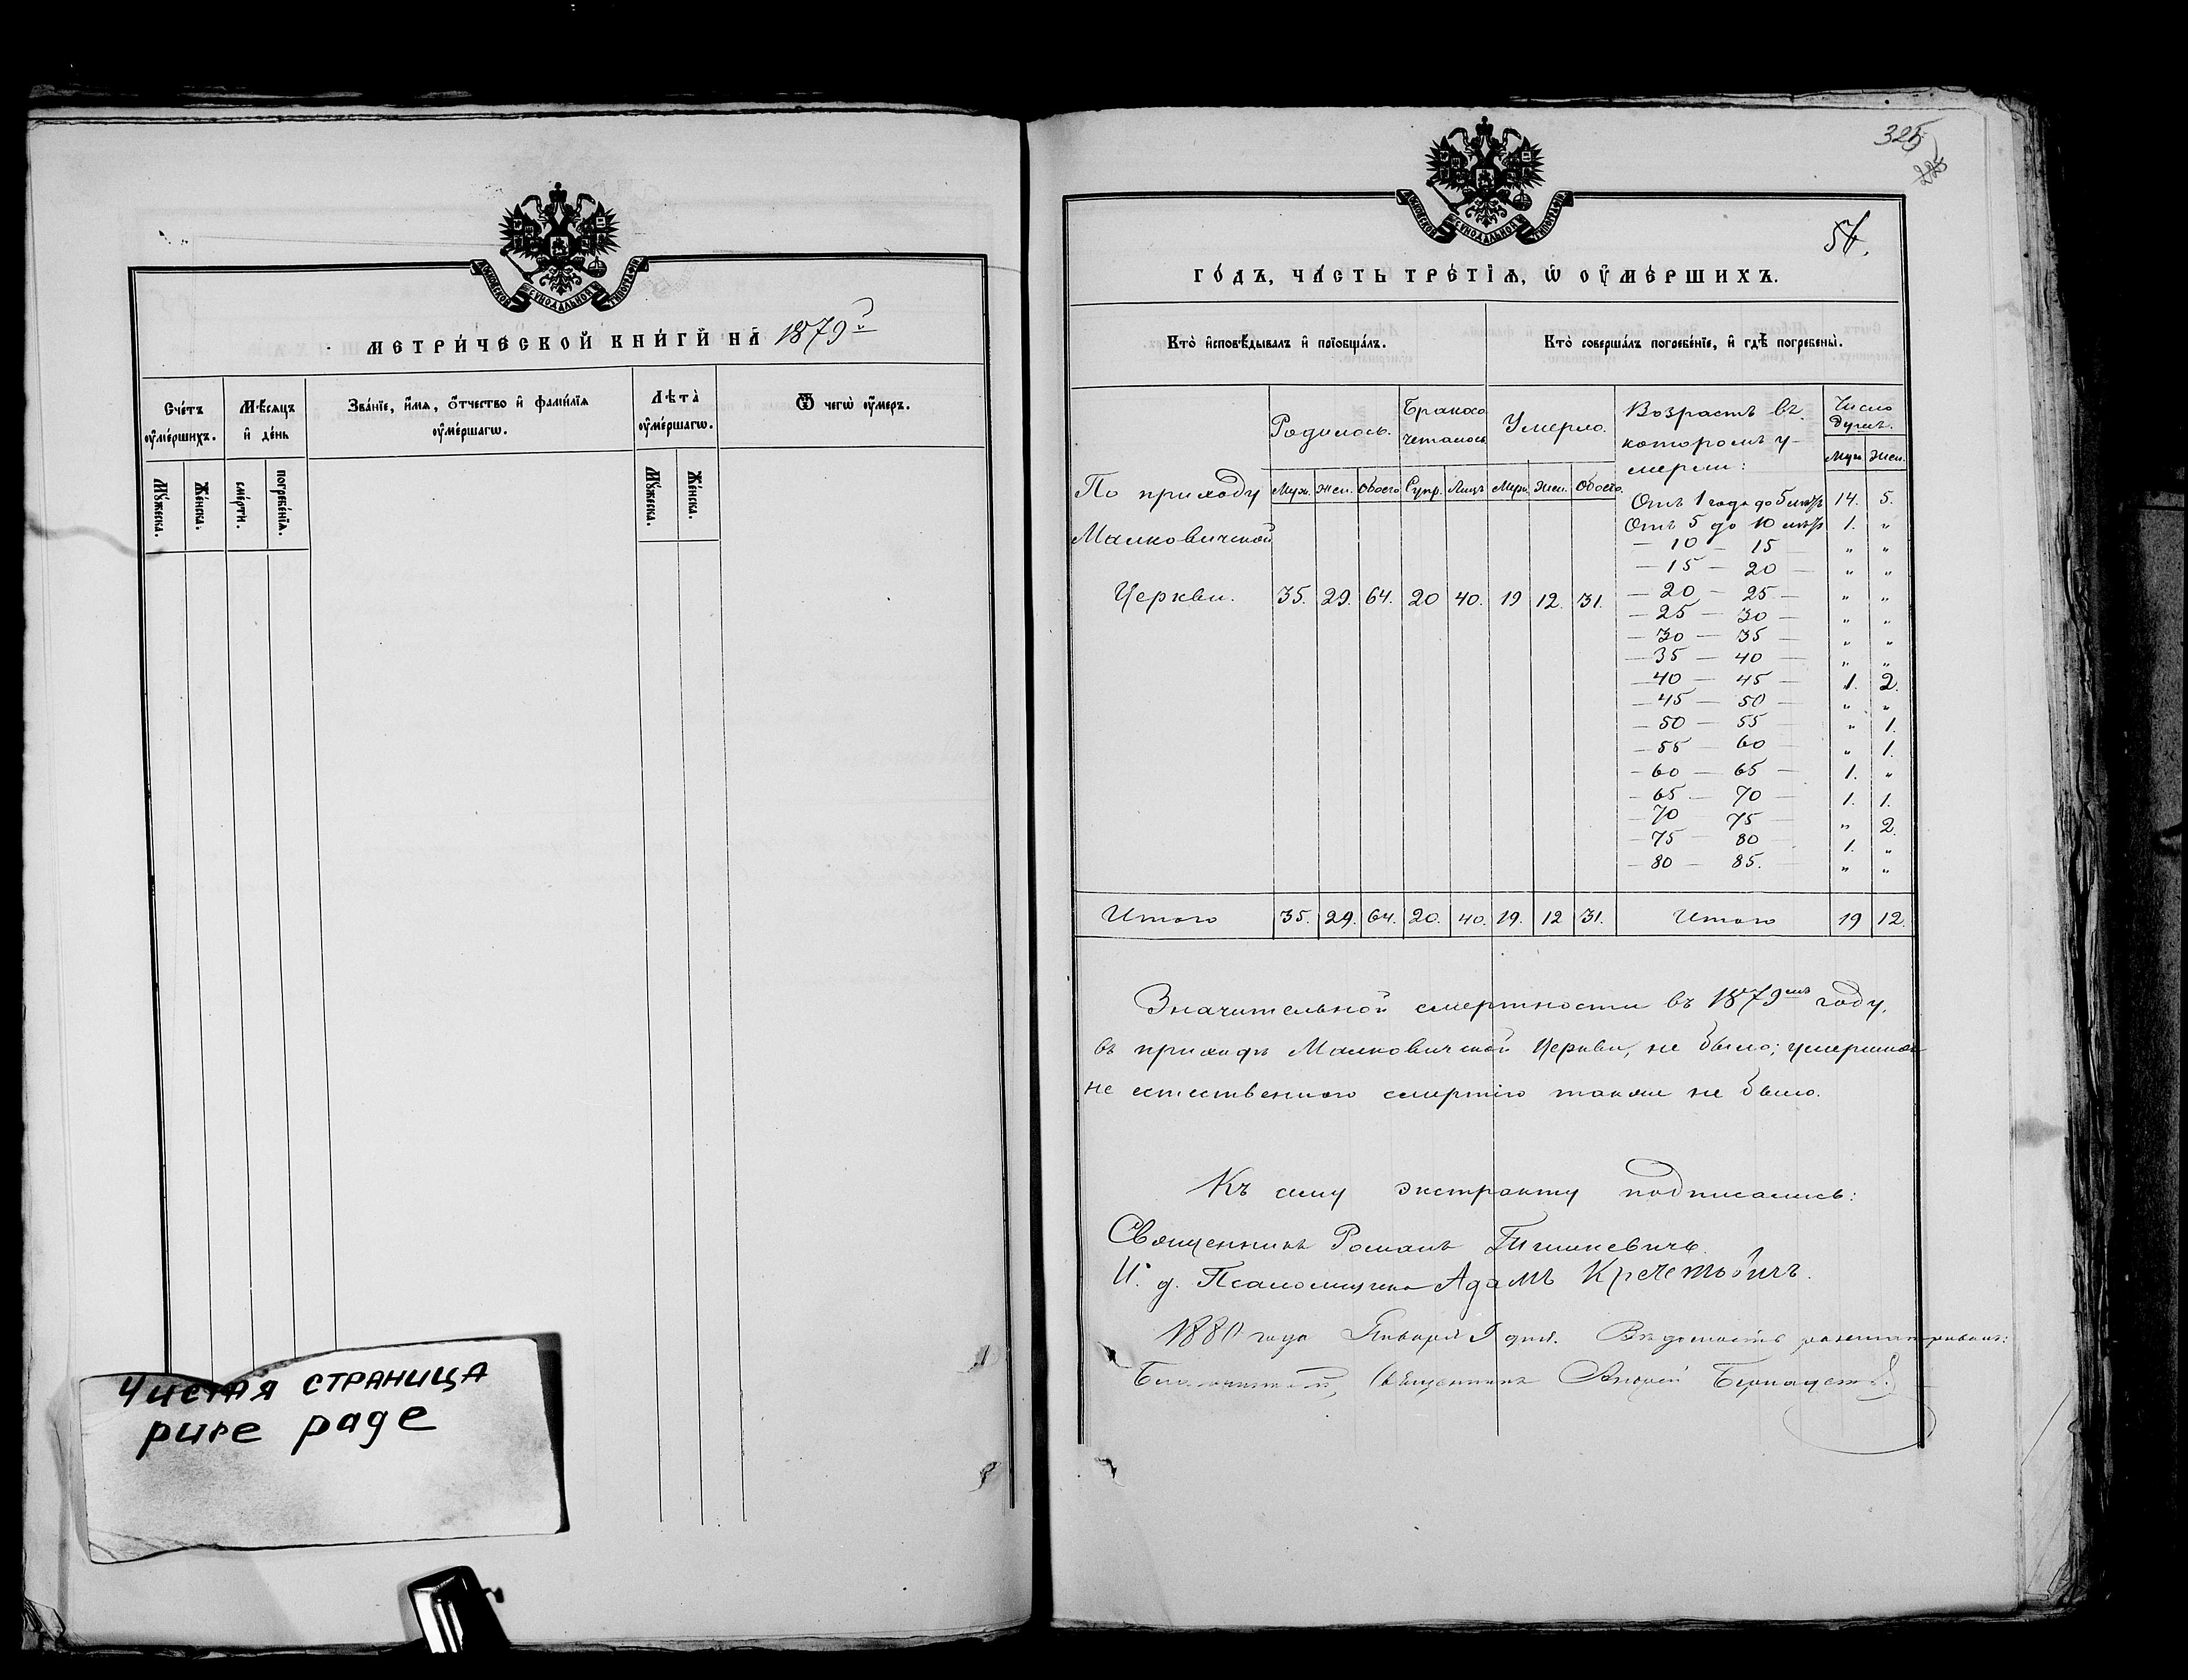 МОСКОВСКОЙ СѴНОДАЛЬНОЙ ТИПОГРАФІИ
МЕТРИ́ЧЕСКОЙ КНИ́ГИ НА̀ 1879й
Сче́тъ ᲂу҆ме́ршихъ.
Мꙋ́жеска.
Же́нска.
Мѣ́сяцъ и҆ де́нь
сме́рти.
погребе́нїѧ.
Зва́нїе, и҆́мѧ, ѻ҆́тчество и҆ фамі́лїѧ
ᲂу҆ме́ршагѡ.
Лѣ́та̀
ᲂу҆ме́ршагѡ.
Мꙋ́жеска.
Же́нска.
Ѿ чегѡ̀ ᲂу҆́меръ.
Чистая страница
pure page
325
МОСКОВСКОЙ СѴНОДАЛЬНОЙ ТИПОГРАФІИ
ГО́ДЪ, ЧА́СТЬ ТРЕ́ТЇѦ, Ѡ҆ ОУ҆МЕ́РШИХЪ.
Кто̀ и҆сповѣ́дывалъ и҆ прїѡбща́лъ.
Кто̀ соверша́лъ погребе́нїе, и҆ гдѣ̀ погребены̀.
Родилось.
Бракосо
четалось
Умерло.
Возрастъ въ
которомъ у-
мерли:
Число
душъ.
Муж. Жен.
По приходу
Малковичской
Церкви.
Муж. Жен. Обоего Супр. Лицъ Муж. Жен. Обоего
35. 29. 64. 20 40. 19 12. 31.
Отъ 1 года до 5 лѣтъ 14. 5.
Отъ 5 до 10 лѣтъ 1. „
— 10 — 15 — „ „
— 15 — 20 — „ „
— 20 — 25 — „ „
— 25 — 30 — „ „
— 30 — 35 — „ „
— 35 — 40 — „ „
— 40 — 45 — 1. 2.
— 45 — 50 — „ „
— 50 — 55 — „ 1.
— 55 — 60 — „ 1.
— 60 — 65 — 1. „
— 65 — 70 — 1. 1.
— 70 — 75 — „ 2.
— 75 — 80 — 1. „
— 80 — 85. — „ „
Итого 35. 29. 64. 20. 40. 19. 12 31. Итого 19 12.
Значительной смертности въ 1879мъ году,
въ приходѣ Малковичской Церкви, не было; умершихъ
не естественною смертію также не было.
Къ сему экстракту подписались:
Священникъ Романъ Тышкевичъ.
И. д. Псаломщика Адамъ Кречетовичъ.
1880 года Января 9 дня. Вѣдомость разсматривалъ:
Благочинный, Священникъ Андрей